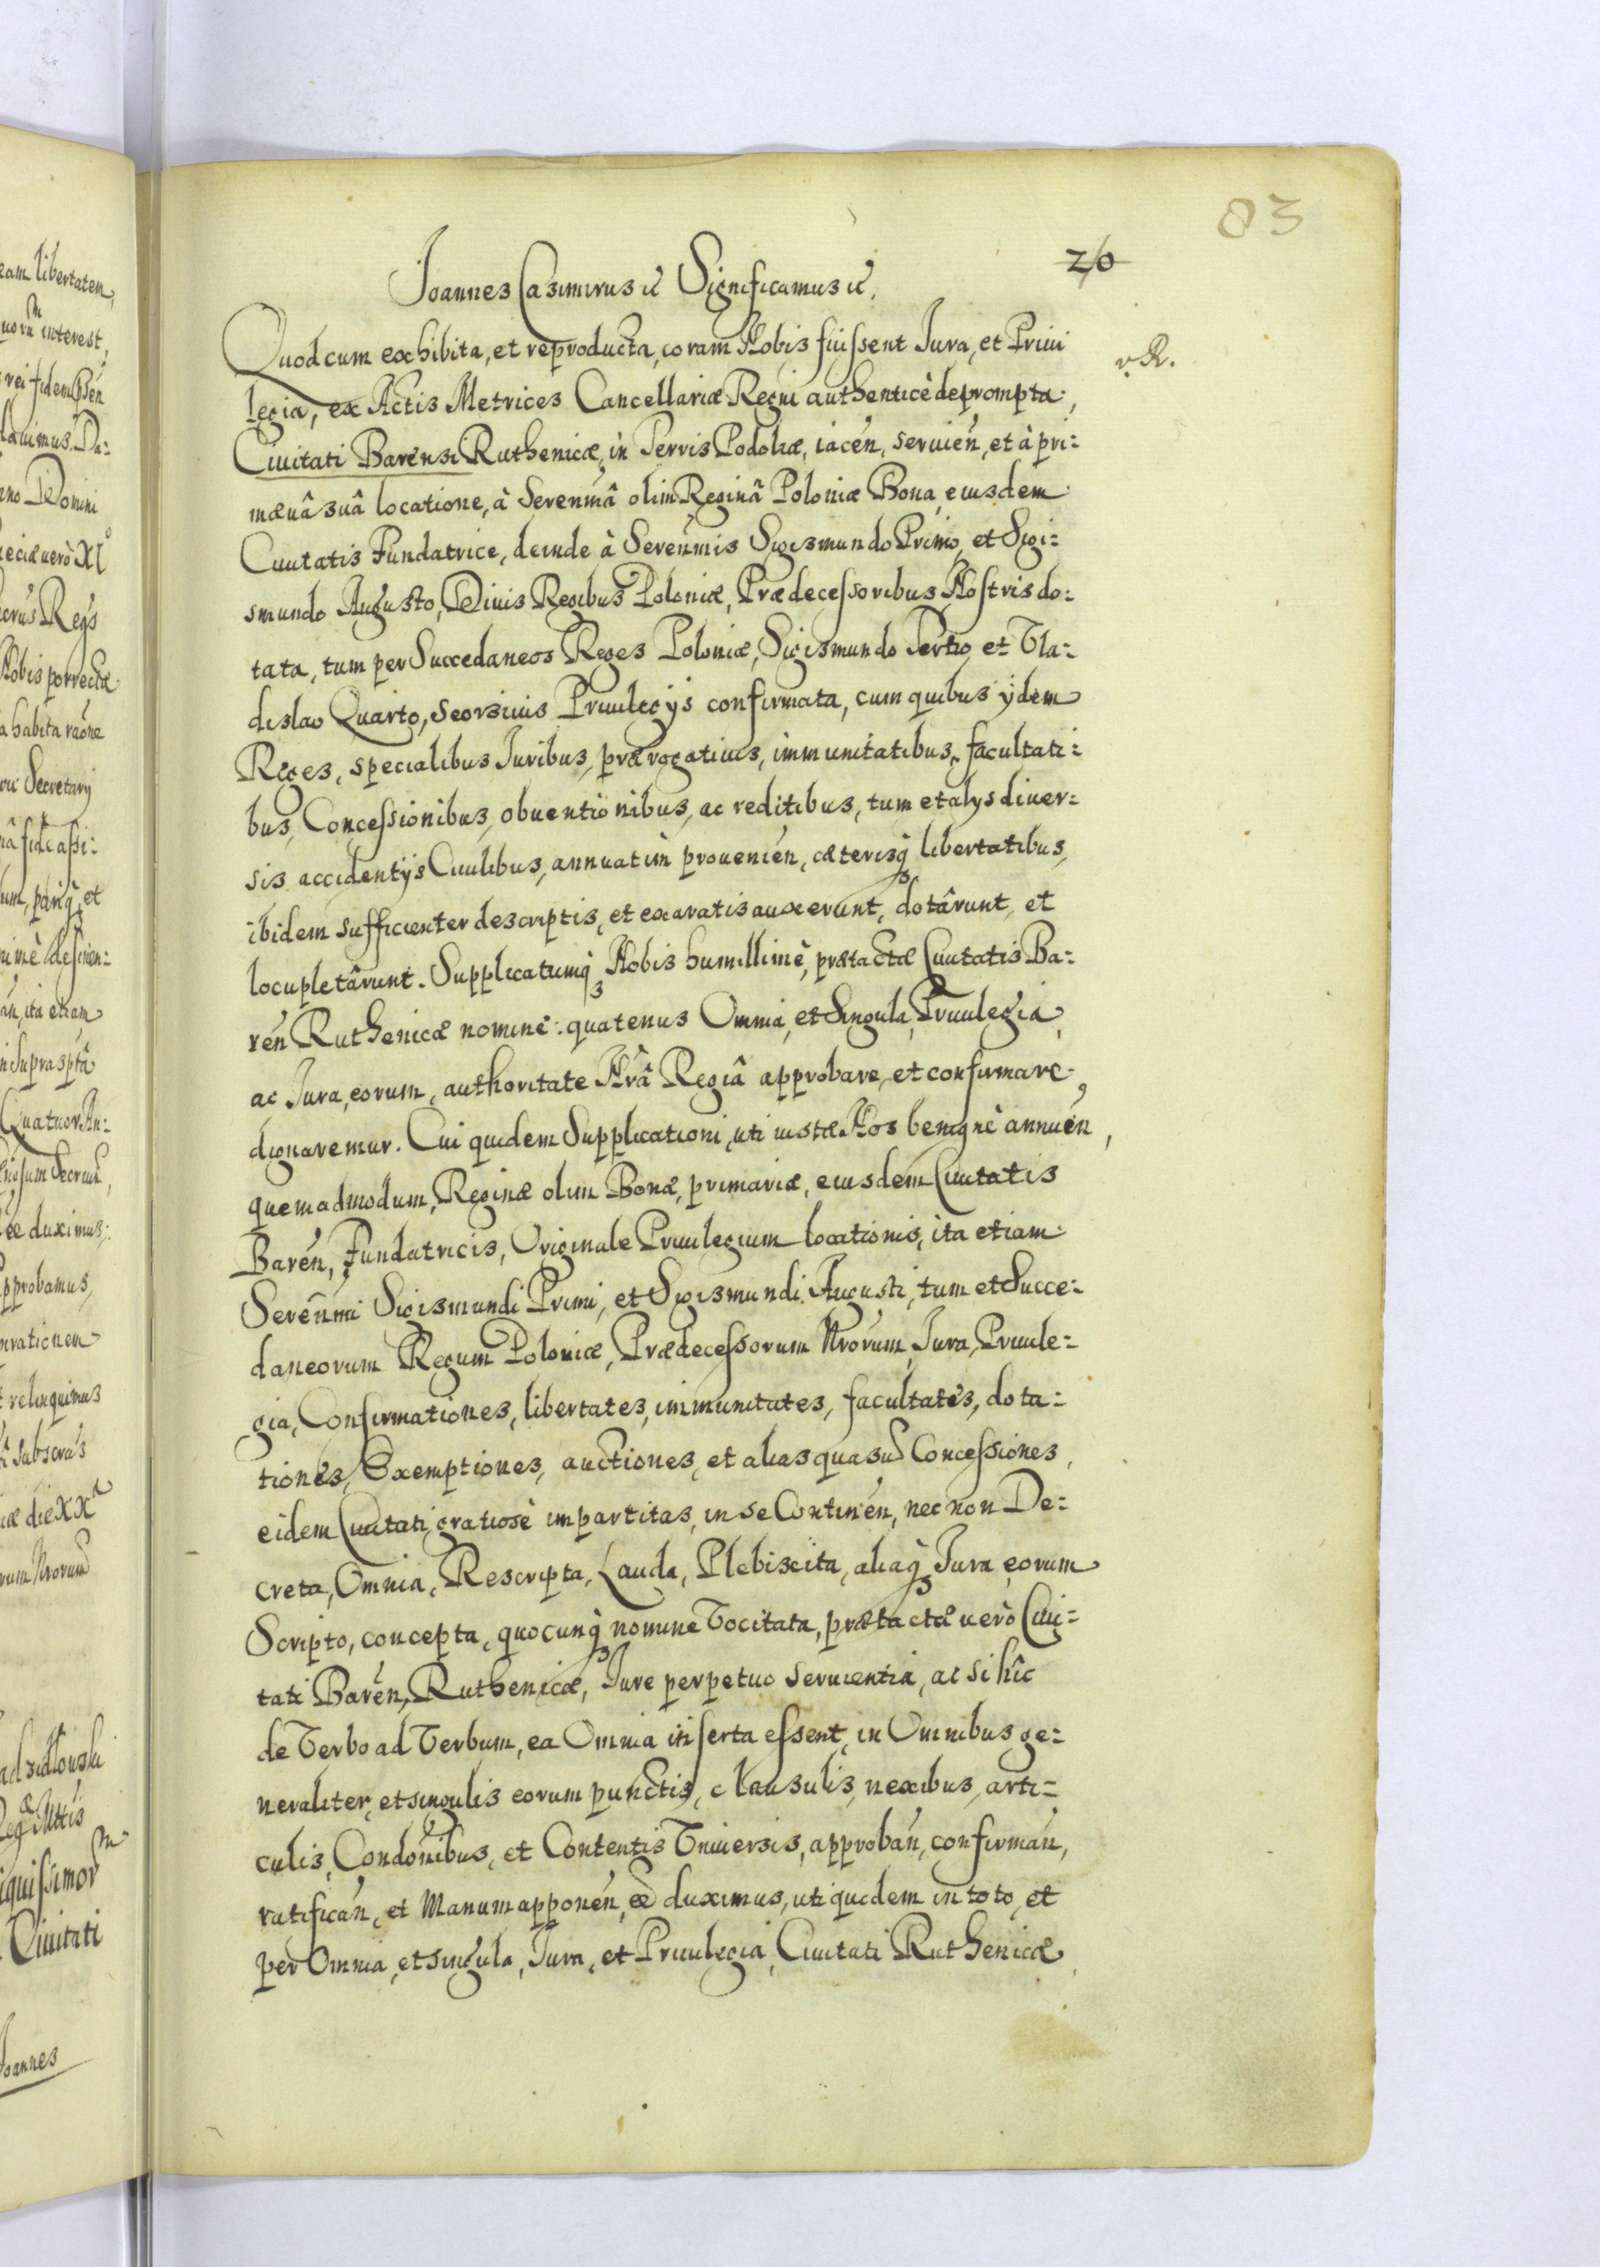 83
20
Joannes Casimirus &c Significamus &c.
Quod cum exhibita, et reproducta, coram Nobis fuissent Jura, et Priui
legia, ex Actis Metrices Cancellariæ Regni authenticè deprompta,
v. R.
Ciuitati Barensi Ruthenicæ, in Terris Podoliæ, iacen, seruien, et à pri:
mæuâ suâ locatione, à Serenmâ olim Reginâ Poloniæ Bona, eiusdem
Ciuitatis Fundatrice, deinde à Serenmis Sigismundo Primo, et Sigi:
smundo Augusto, Diuis Regibus Poloniæ, Prædecessoribus Nostris do:
tata, tum per Succedaneos Reges Poloniæ, Sigismundo Tertio, et Vla:
dislao Quarto, seorsiuis Priuilegijs confirmata, cum quibus ijdem
Reges, specialibus Juribus, prærogatiuis, immunitatibus, facultati:
bus, Concessionibus, obuentionibus, ac reditibus, tum et alys diuer:
sis accidentijs Ciuilibus, annuatim prouenien, cæterisq3 libertatibus,
ibidem sufficienter descriptis, et exaratis auxerunt, dotârunt, et
locupletârunt. Supplicatumq3 Nobis humillimè, prætactæ Ciuitatis Ba:
ren Ruthenicæ nomine: quatenus Omnia, et Singula, Priuilegia,
ac Jura, eorum, authoritate Nrâ Regiâ approbare, et confirmare
dignaremur. Cui quidem Supplicationi, uti iustæ Nos benignè annuen,
quemadmodum, Reginæ olim Bonæ, primariæ, eiusdem Ciuitatis
Baren, Fundatricis, Originale Priuilegium locationis, ita etiam
Serenmi Sigismundi Primi, et Sigismundi Augusti, tum et Succe:
daneorum Regum Poloniæ, Prædecessorum Nrorum, Jura, Priuile:
gia, Confirmationes, libertates, immunitates, facultates, dota:
tiones, Exemptiones, auctiones, et alias quasuis Concessiones,
eidem Ciuitati, gratiosè impartitas, in se Continen, nec non De:
creta, Omnia, Rescripta, Lauda, Plebiscita, aliaq3 Jura eorum
Scripto, concepta, quocunq3 nomine Vocitata, prætactæ uerò Ciui:
tati Baren, Ruthenicæ, Jure perpetuo seruientia, ac si hîc
de Verbo ad Verbum, ea Omnia inserta essent, in Omnibus ge:
neraliter, et singulis eorum punctis, clausulis, nexibus, arti:
culis, Condonibus, et Contentis Vniuersis, approban, confirman,
ratifican, et Manum apponen, ee duximus, uti quidem in toto, et
per Omnia, et singula, Jura, et Priuilegia, Ciuitati Ruthenicæ